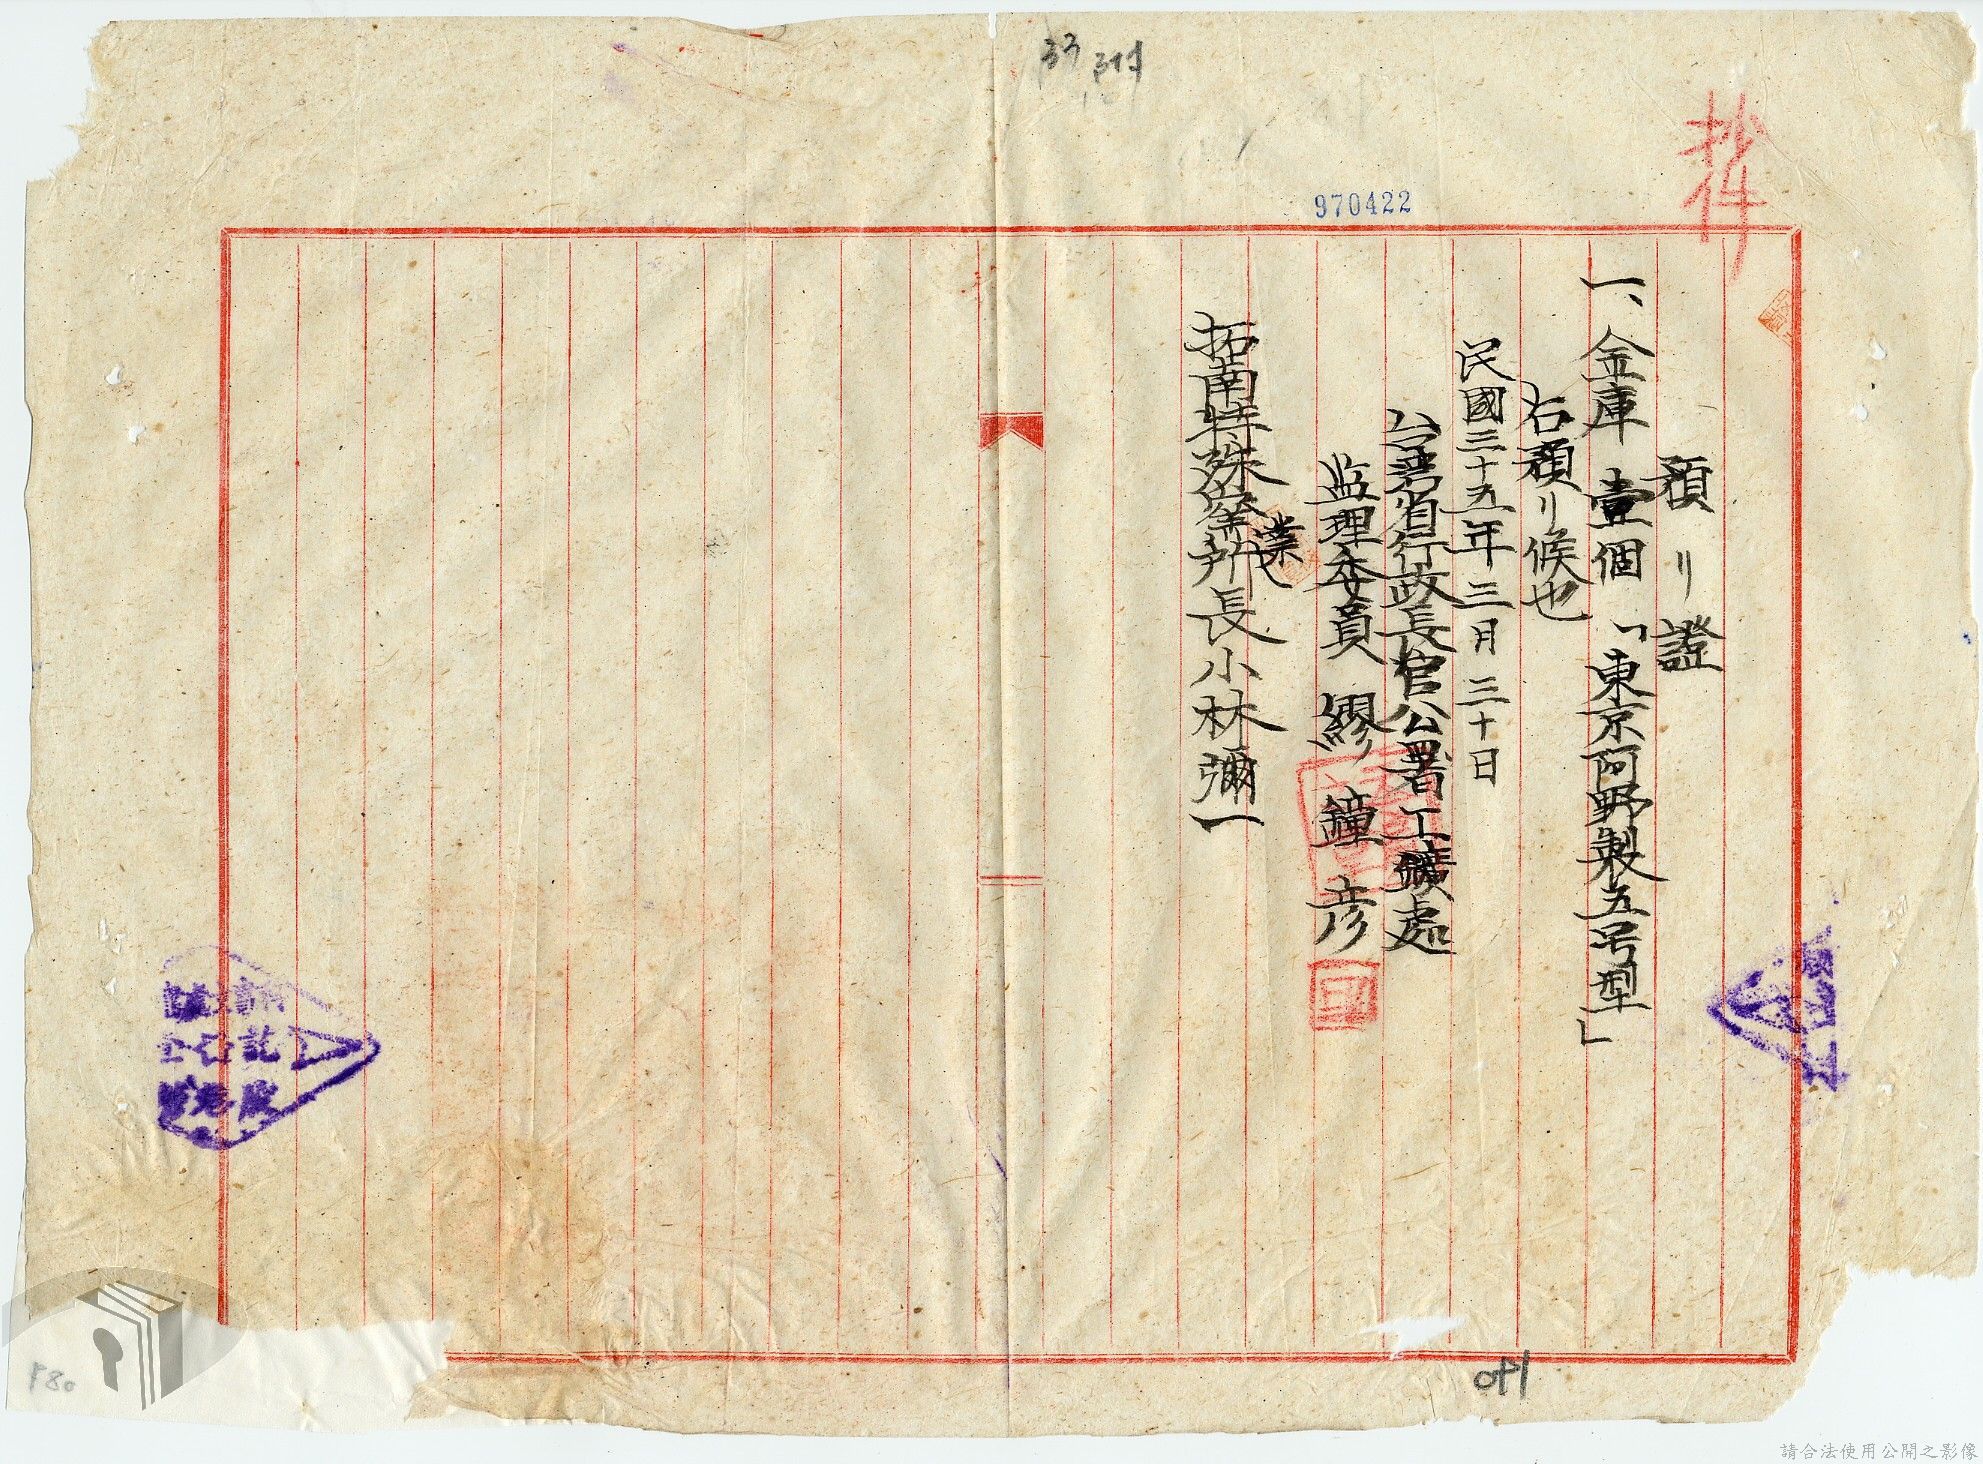 33
抄件
970422
預リ證
一、金庫 壹個 「東京阿野製五号型」
右預リ候也
民國三十五年三月三十日
台湾省行政長官公署工礦處
監理委員 繆鐘彦
業
拓南特殊窯所長小林彌一
140
P80
請合法使用公開之影像